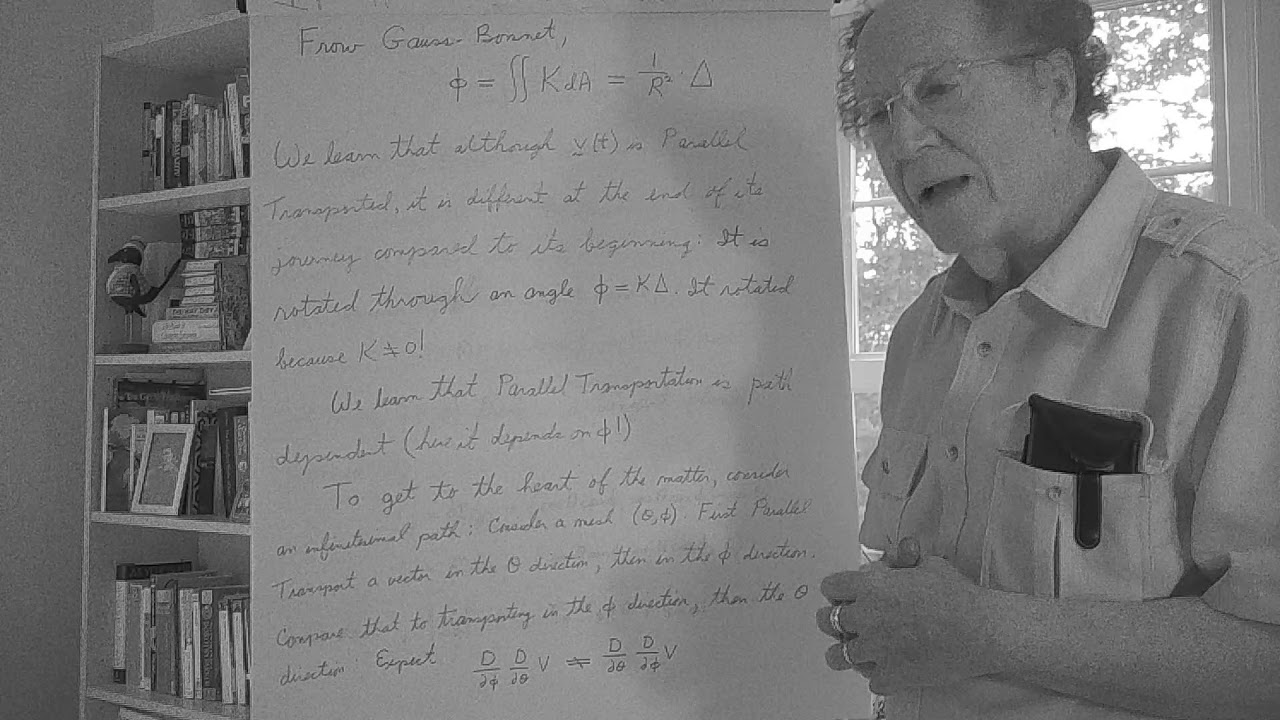 From Gauss-Bonnet,
ϕ = ∬ K dA = 1/R² · Δ
We learn that although v(t) is Parallel
Transported, it is different at the end of its
journey compared to its beginning: It is
rotated through an angle ϕ = KΔ. It rotated
because K ≠ 0!
We learn that Parallel Transportation is path
dependent (here it depends on ϕ!)
To get to the heart of the matter, consider
an infinitesimal path: Consider a mesh (θ,ϕ). First Parallel
Transport a vector in the θ direction, then in the ϕ direction.
Compare that to transporting in the ϕ direction, then the θ
direction: Expect D/∂ϕ D/∂θ V ≠ D/∂θ D/∂ϕ V